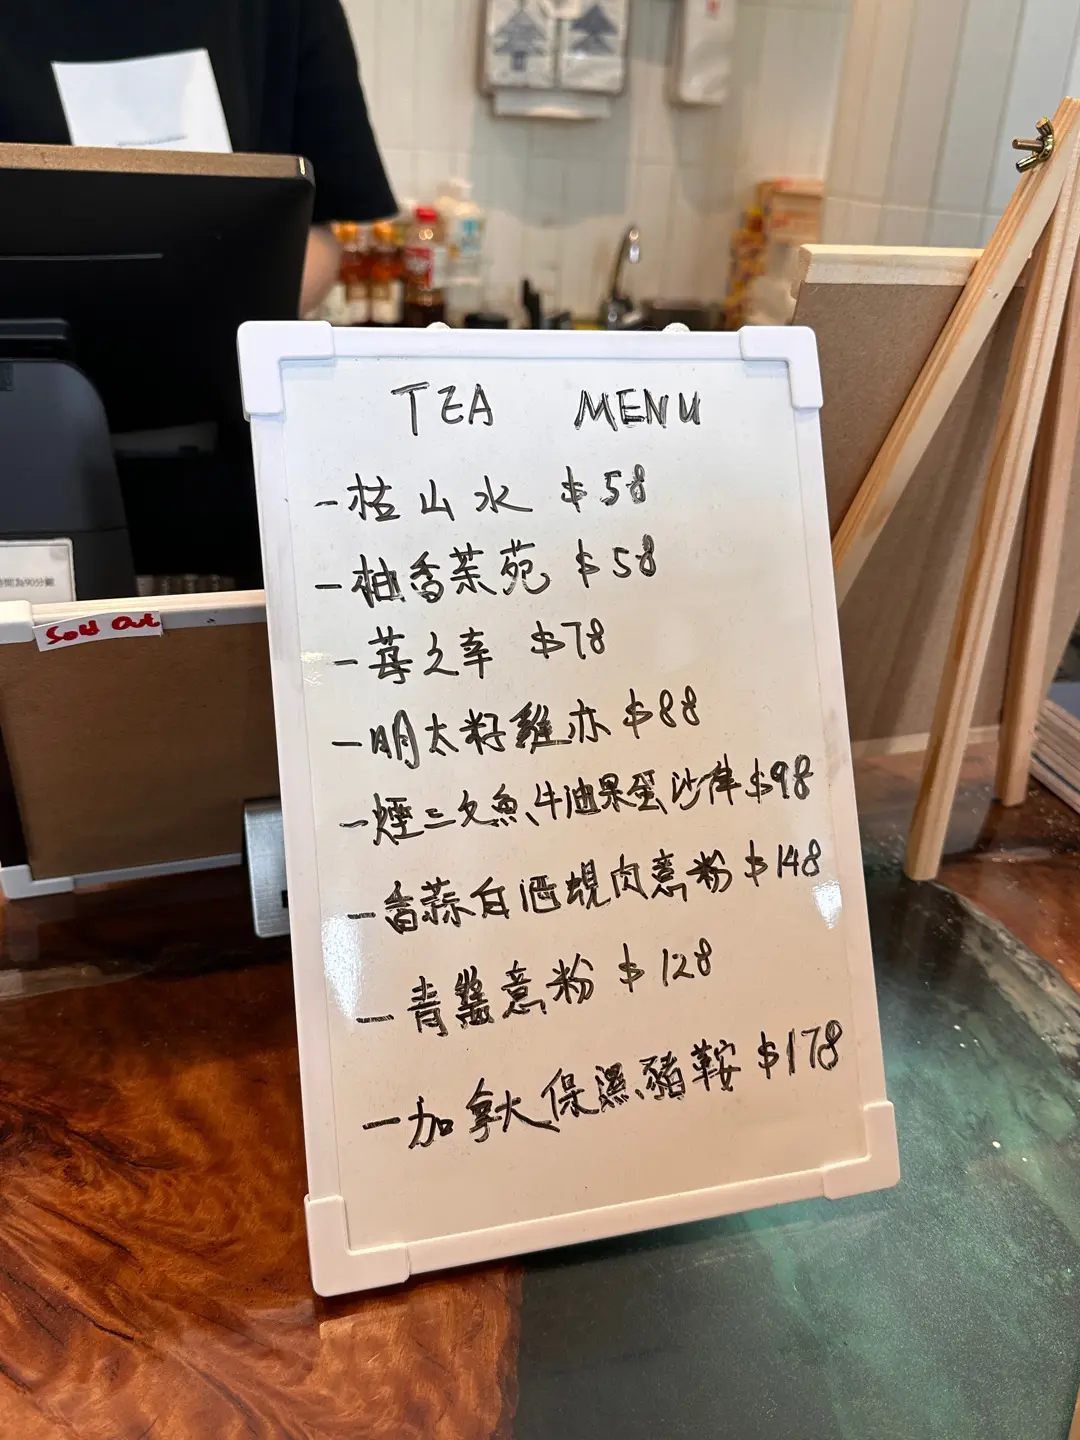 TEA MENU
-枯山水 $58
-柚香茶苑 $58
-莓之幸 $78
-明太籽雞亦 $88
-煙三文魚牛油果蛋沙律 $98
-香蒜白酒蜆肉意粉 $148
-青醬意粉 $128
-加拿大保濕豬鞍 $178
Sold Out
時間為90分鐘